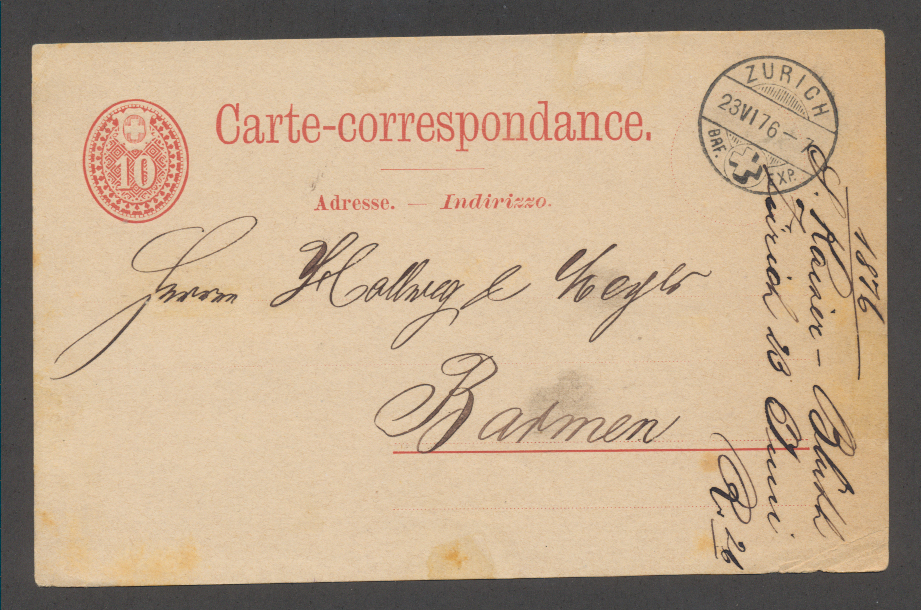 10
Carte-correspondance.
Adresse. — Indirizzo.
ZURICH
23 VI 76 — 7
BRF. EXP.
Herren Hollweg &
Barmen
1876
S.
Zürich 23 Juni
R 26